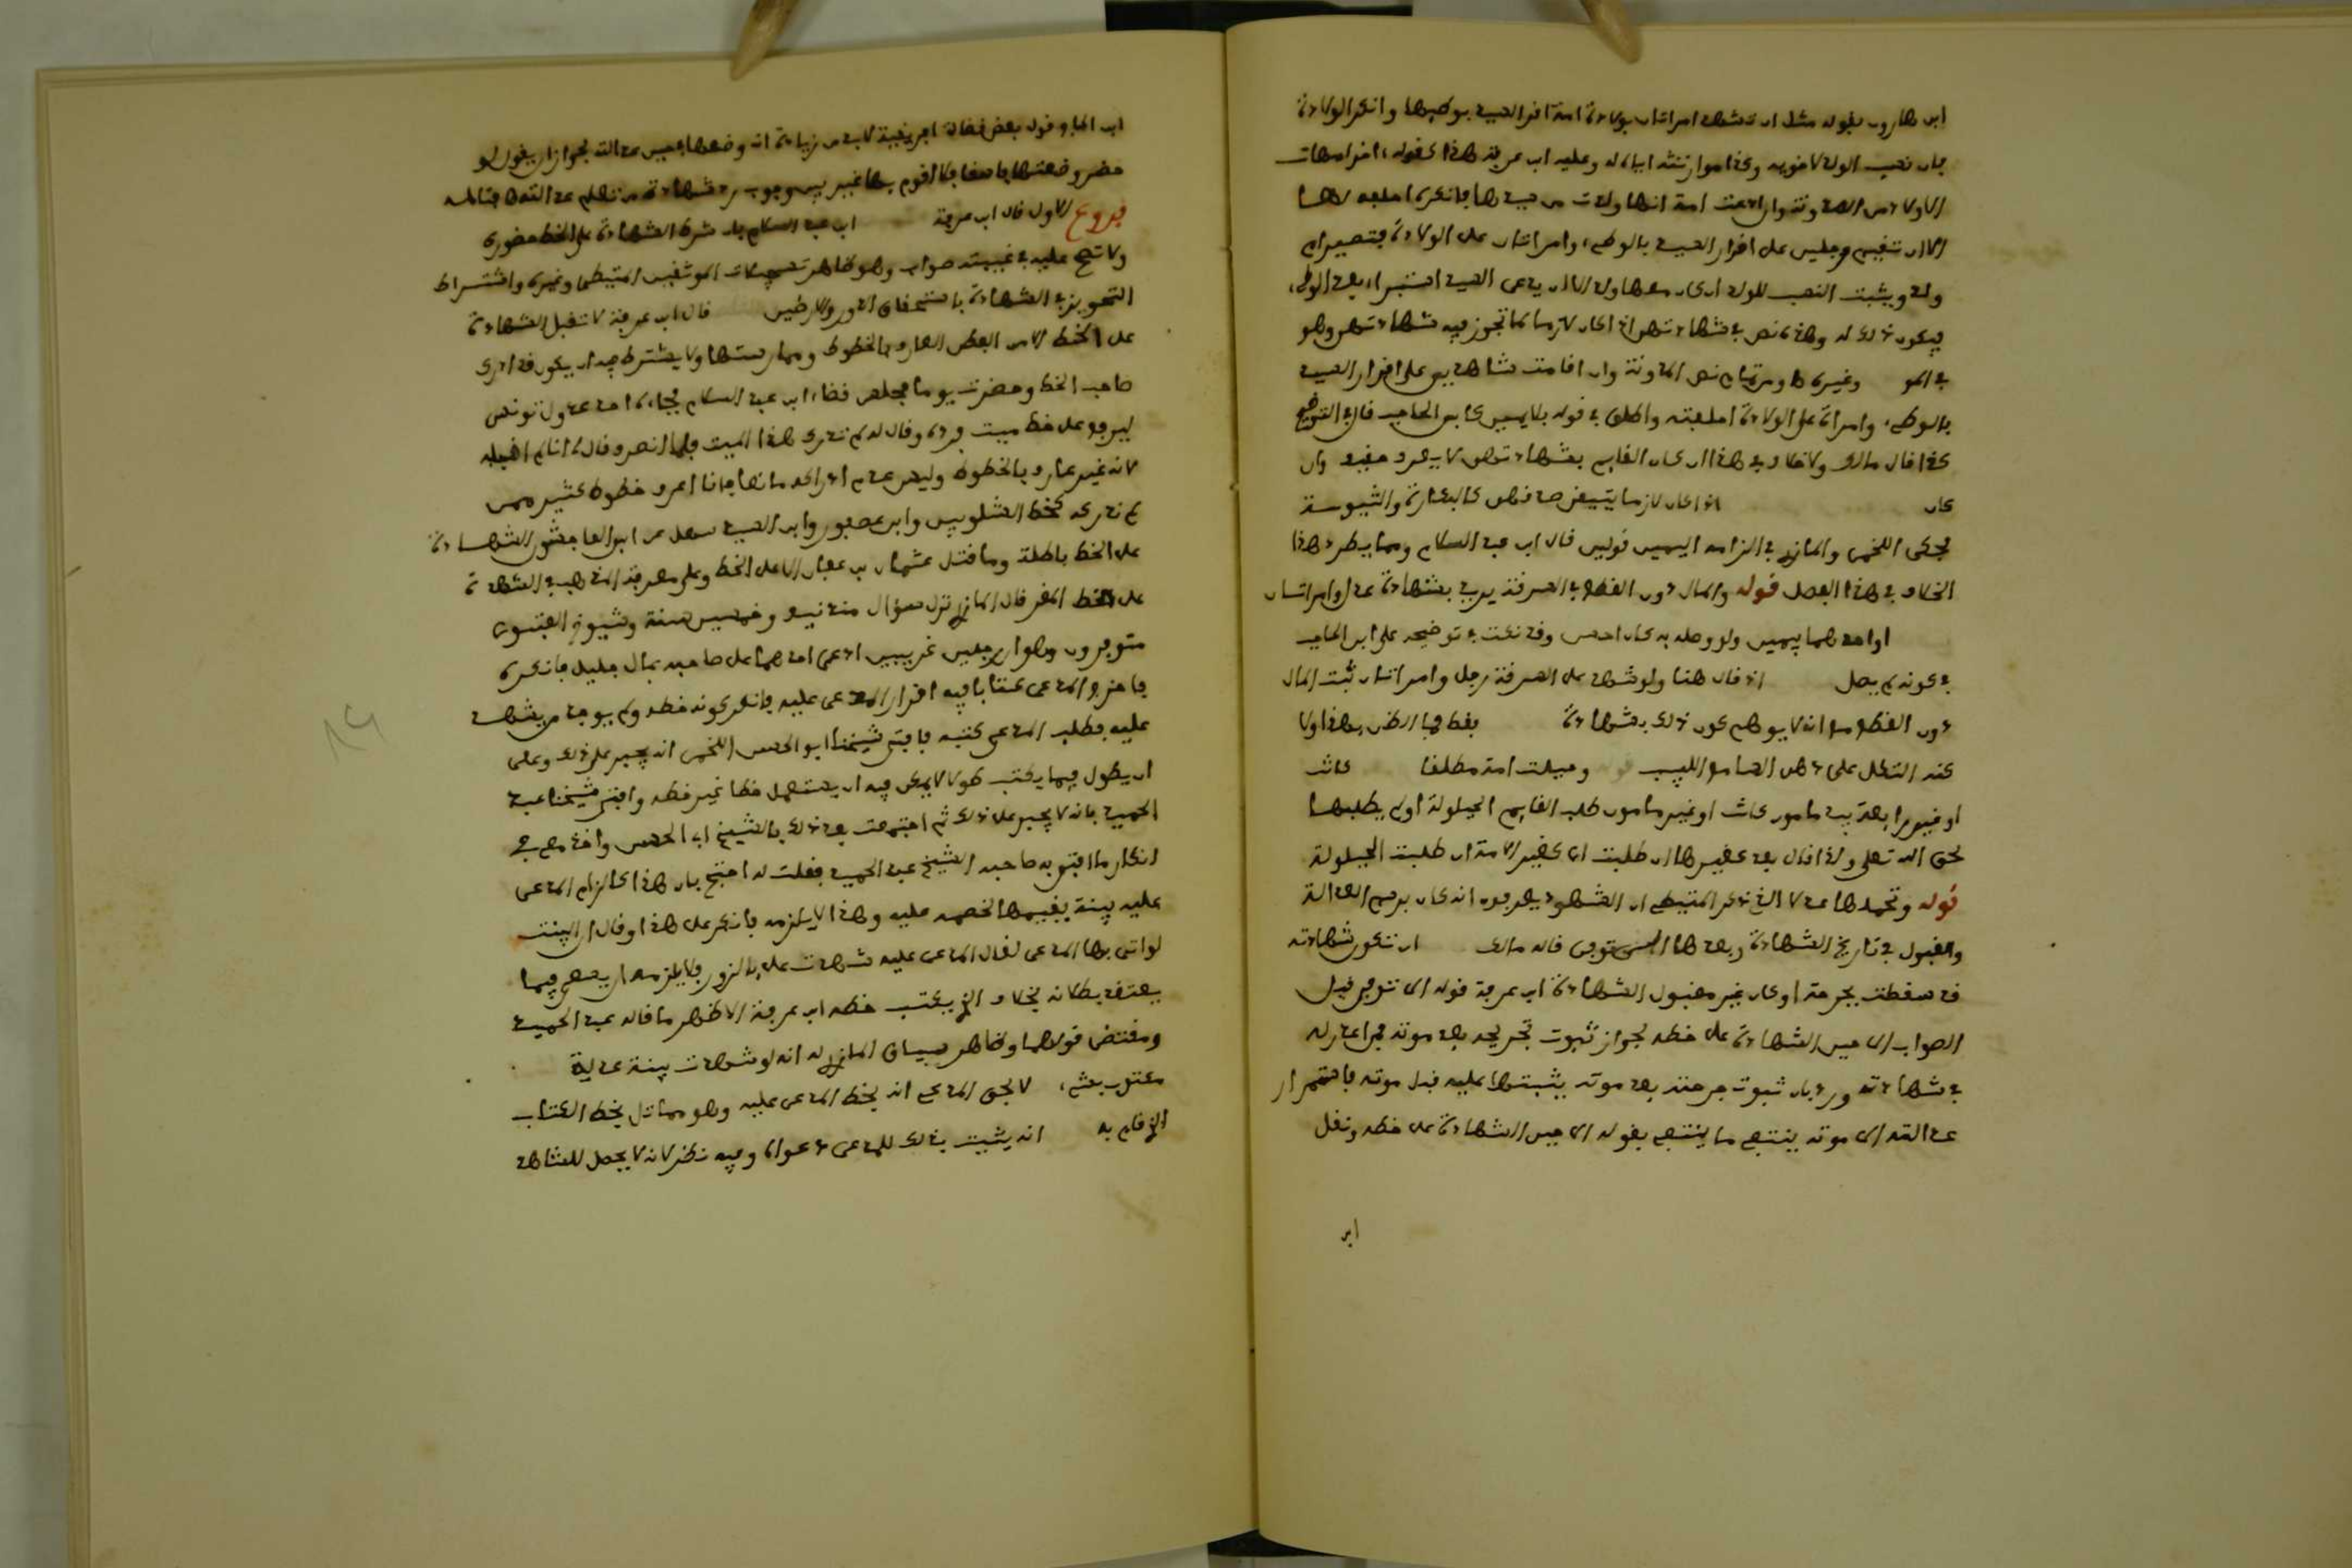 ابن هارون بقوله مثل ان تشهد امراتان بولادة امة اقر السيد بوطيها وانكر الولادة
فان نسب الولد لاخويه وكذا موارثته اياه له وعليه ابن عرفة هذا كقوله في امهات
الاولاد من المدونة وان ادعت امة انها ولدت من سيدها فانكر لم احلفه لها
الا ان تقيم رجلين على اقرار السيد بالوطء وامراتان على الولادة فتصير ام
ولد ويثبت النسب للولد ان كان معها ولد الا ان يدعي السيد استبراء بعد الوطء
فيكون ذلك له وهذه نص في شهادتهن اذا كان لازما لما تجوز فيه شهادتهن وهو
في المو وغيره ومن تمام نص المدونة وان اقامت شاهدين على اقرار السيد
بالوطء وامراة على الولادة احلفته واطلق في قوله بلا يمين كابن الحاجب قال في التوضيح
كذا قال مالك ولا خلاف في هذا ان كان القايم بشهادتهن لا يعرف حقيقة وان
كان اذا كان لازما يتيقن صدقهن كالبكارة والثيوبة
فحكى اللخمي والمازري في الزامه اليمين قولين قال ابن عبد السلام ومما يطرد هذا
الخلاف في هذا الفصل قوله والمال دون القطع في السرقة يريد بشهادة عدل وامراتان
او احدهما بيمين ولو وصله به كان احسن وقد نكت في توضيحه على ابن الحاجب
في كونه لم يصل اذ قال هنا ولو شهد على السرقة رجل وامراتان ثبت المال
دون القطع مع انه لا يوهم كون ذلك بشهادة فقط فما الظن بهذا ولا
اوغيرها بعدلين مامون كانت او غير مامون طلب القايم الحيلولة او لم يطلبها
لحق الله تعالى ولذا قال بعد كغيرها ان طلبت اي كغير الامة ان طلبت الحيلولة
قوله وتحملها عدلا الخ ذكر المتيطي ان الشهود يعرفون انه كان برسم العدالة
والقبول في تاريخ الشهادة وبعدها الى حين توفي قاله مالك ان تكون شهادته
قد سقطت بجرحة او كان غير مقبول الشهادة ابن عرفة قوله الى توفي قيل
الصواب الى حين الشهادة على خطه لجواز ثبوت تجريحه بعد موته
في شهادته ورد بان ثبوت جرحته بعد موته يثبتها عليه قبل موته فاستمرار
عدالته الى موته ينتج ما ينتج بقوله الى حين الشهادة على خطه ونقل
ابن
ابن الحاج قول بعض فقهاء افريقية لابد من زيادة انه وضعها حين عدالته لجواز ان يقول لو
حضر وضعتها
فروع الاول قال ابن عرفة ابن عبد السلام بان شرط الشهادة على الخط حضوره
ولا تصح عليه في غيبته صواب وهو ظاهر تسجيلات الموثقين المتيطي وغيره واشتراط
قال ابن عرفة لا تقبل الشهادة
على الخط الا من الفطن العارف بالخطوط وممارستها ولا يشترط فيه ان يكون قد ادرك
صاحب الخط وحضرت يوما مجلس قضاء ابن عبد السلام فجاءه احد عدول تونس
ليرفع على خط ميت فرده وقال له لم تدرك هذا الميت فلما انصرف قال انا لم اقبله
لانه غير عارف بالخطوط وليس عدم ادراكه مانعا فانا اعرف خطوط كثير ممن
لم ندركه كخط الشلوبين وابن عصفور وابن السيد
على الخط باطلة وما قتل عثمان بن عفان الا على الخط
على خط المقر قال المازري نزل سؤال منذ نيف وخمسين سنة وشيوخ الفتوى
متوفرون وهو ان رجلين غريبين ادعى احدهما على صاحبه بمال جليل فانكره
فاخرج المدعي كتابا فيه اقرار المدعى عليه فانكر كونه خطه ولم يوجد من يشهد
عليه فطلب المدعي كتبه فافتى شيخنا ابو الحسن اللخمي انه يجبر على ذلك وعلى
ان يطول فيما يكتب طولا لا يمكن فيه ان يستعمل خطا غير خطه وافتى شيخنا عبد
الحميد بانه لا يجبر على ذلك ثم اجتمعت بعد ذلك بالشيخ ابي الحسن واخذ معي في
انكار ما افتى به صاحبه الشيخ عبد الحميد فقلت له احتج بان هذا كالزام المدعى
عليه بينة يقيمها لخصمه عليه وهذا لا يلزمه فانكر على هذا وقال ان البينة
لو اتى بها المدعي لقال المدعى عليه شهدت علي بالزور فلا يلزمه ان يسعى فيما
يعتقد بطلانه بخلاف الذي يكتب خطه ابن عرفة الاظهر ما قاله عبد الحميد
ومقتضى قولهما وظاهر سياق المازري له انه لو شهدت بينة عدلة
لا بحق المدعي انه بخط المدعى عليه وهو مماثل بخط الكتاب
الذي قام به انه يثبت بذلك للمدعي دعواه وفيه نظر لانه لا يحصل للشاهد